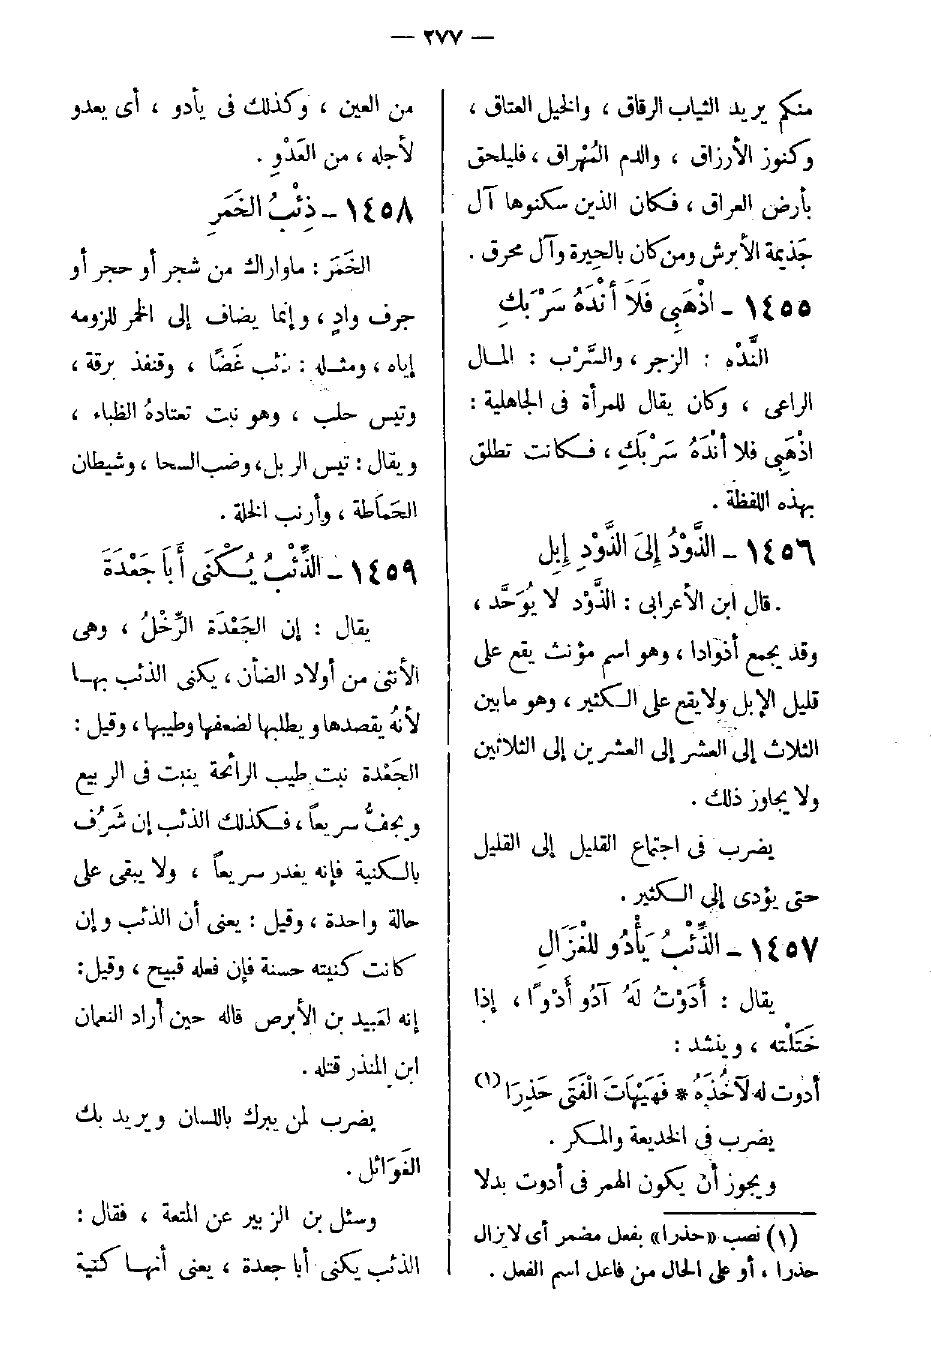 — ٢٧٧ —
منكم يريد الثياب الرقاق ، والخيل العتاق ،
وكنوز الأرزاق ، والدم المُهْراق ، فليلحق
بأرض العراق ، فكان الذين سكنوها آل
جَذيمة الأبرش ومن كان بالحِيرة وآل محرق .
١٤٥٥ - اذْهَبِي فَلَا أَنْدَهُ سَرْبَكِ
النَّدْه : الزجر ، والسَّرْب : المال
الراعى ، وكان يقال للمرأة فى الجاهلية :
اذْهَبِى فلا أنْدَهُ سَرْبَكِ ، فكانت تطلق
بهذه اللفظة .
١٤٥٦ - الذَّوْدُ إِلَى الذَّوْدِ إِبِل
قال ابن الأعرابى : الذَّوْد لا يُوَحَّد ،
وقد يجمع أذوادا ، وهو اسم مؤنث يقع على
قليل الإبل ولا يقع على الكثير ، وهو ما بين
الثلاث إلى العشر إلى العشرين إلى الثلاثين
ولا يجاوز ذلك .
يضرب فى اجتماع القليل إلى القليل
حتى يؤدى إلى الكثير .
١٤٥٧ - الذِّئْبُ يَأْدُو لِلْغَزَالِ
يقال : أَدَوْتُ لَهُ آدُو أَدْوًا ، إذا
خَتَلْته ، وينشد :
أدوت له لآخُذَهُ * فَهَيْهَاتَ الْفَتَى حَذِرَا (١)
يضرب فى الخديعة والمكر .
ويجوز أن يكون الهمز فى أدوت بدلا
(١) نصب «حذرا» بفعل مضمر أى لايزال
حذرا ، أو على الحال من فاعل اسم الفعل .
من العين ، وكذلك فى يأدو ، أى يعدو
لأجله ، من العَدْوِ .
١٤٥٨ - ذِئْبُ الخَمَرِ
الخَمَر : ماواراك من شجر أو حجر أو
جرف وادٍ ، وإنما يضاف إلى الخمر للزومه
إياه ، ومثله : ذئب غَضًا ، وقنفذ برقة ،
وتيس حلب ، وهو نبت تعتادهُ الظباء ،
ويقال : تيس الربل ، وضب السحا ، وشيطان
الحَمَاطة ، وأرنب الخلة .
١٤٥٩ - الذِّئْبُ يُكْنَى أَبَا جَعْدَةَ
يقال : إن الجَعْدَة الرِّخْلُ ، وهى
الأنثى من أولاد الضأن ، يكنى الذئب بها
لأنهُ يقصدها ويطلبها لضعفها وطيبها ، وقيل :
الجَعْدة نبت طيب الرائحة ينبت فى الربيع
ويجفُّ سريعاً ، فكذلك الذئب إن شَرُف
بالكنية فإنه يغدر سريعاً ، ولا يبقى على
حالة واحدة ، وقيل : يعنى أن الذئب وإن
كانت كنيته حسنة فإن فعله قبيح ، وقيل :
إنه لعَبيد بن الأبرص قاله حين أراد النعمان
ابن المنذر قتله .
يضرب لمن يبرك باللسان ويريد بك
الغَوَائل .
وسئل بن الزبير عن المتعة ، فقال :
الذئب يكنى أبا جعدة ، يعنى أنها كنية